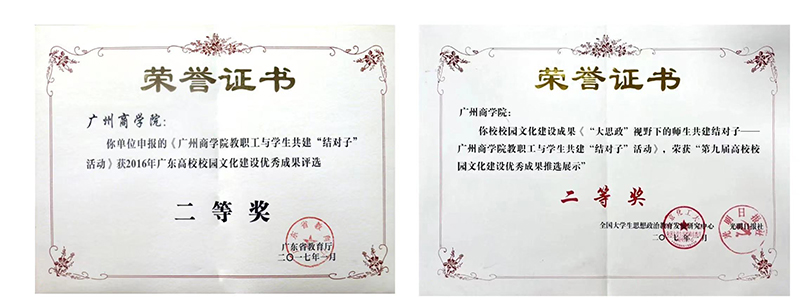 荣誉证书
广州商学院:
你单位申报的《广州商学院教职工与学生共建“结对子”
活动》获2016年广东高校校园文化建设优秀成果评选
二等奖
广东省教育厅
二〇一七年一月
荣誉证书
广州商学院:
你校校园文化建设成果《“大思政”视野下的师生共建结对子——
广州商学院教职工与学生共建“结对子”活动》，荣获“第九届高校校
园文化建设优秀成果推选展示”
二等奖
全国大学生思想政治教育发展研究中心 光明日报社
二〇一七年 月